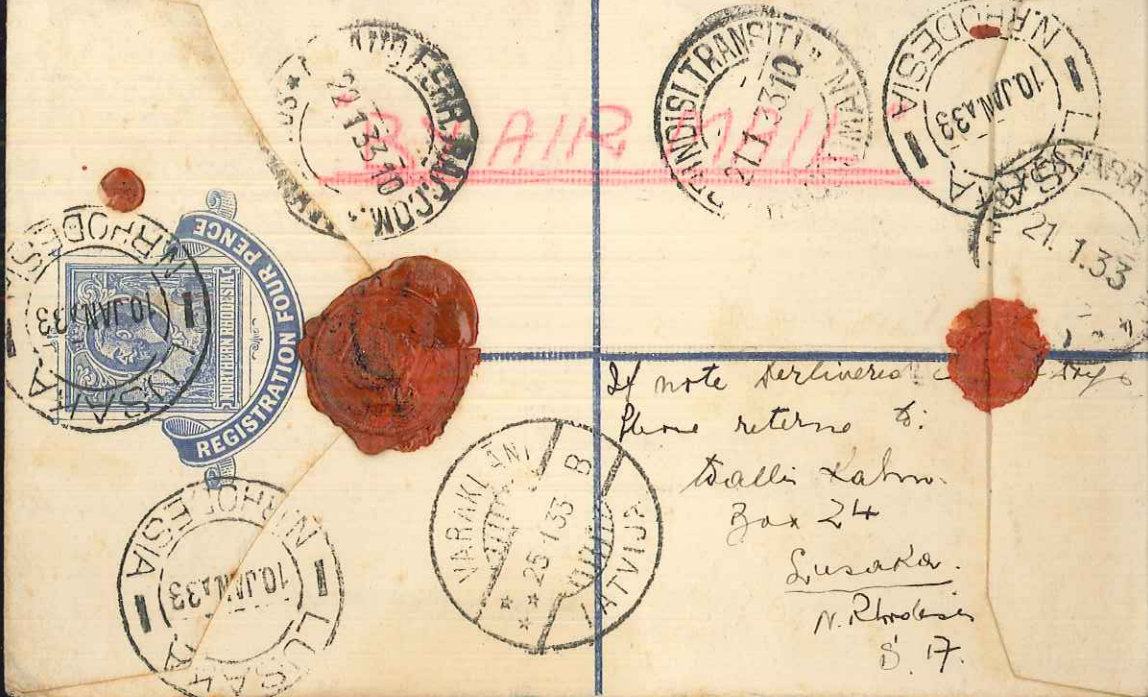 BY AIR MAIL
22 1 33 10
COM.
BRINDISI TRANSITI
21 1 33 10
LUSAKA
N. RHODESIA
10 JAN 33
21. 1. 33
LUSAKA
N. RHODESIA
10 JAN 33
REGISTRATION FOUR PENCE
NORTHERN RHODESIA
LUSAKA
N. RHODESIA
10 JAN 33
VARAKLANI
B
25 1 33
LATVIJA
If note derlivered
Please returne to:
Box 24
Lusaka.
N. Rhodesia
S. A.